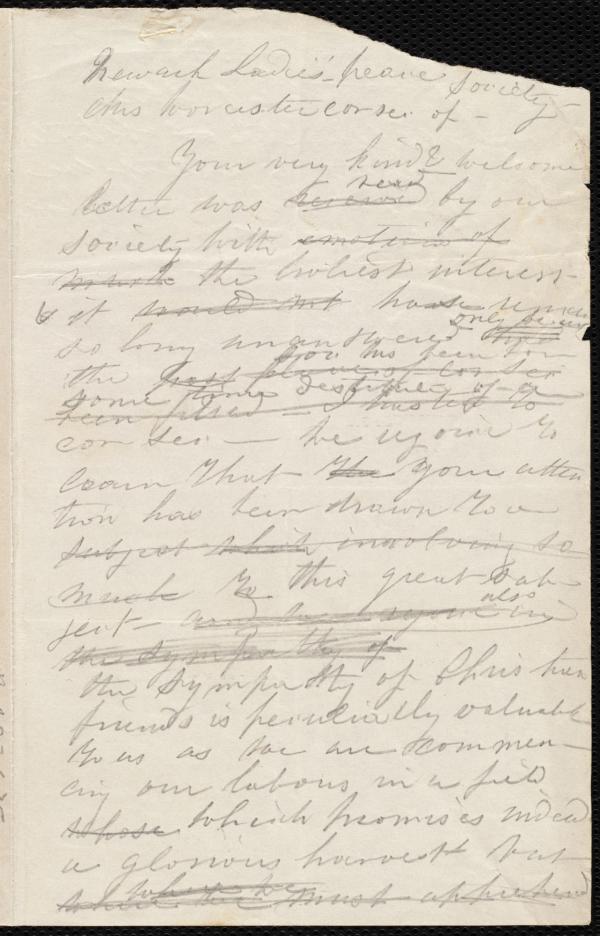 Newark Ladies' peace Society
this Worcester cor sec. of -
Your very kind & welcome
letter was received read by our
society with emotions of
much the liveliest interest
& it would not have
so long unanswered only
the place of cor sec
some time destitute of a
been filled - I hasted to
cor sec. — We rejoice to
learn that the your atten
tion has been drawn to a
subject which involving so
much to this great sub
ject - and we rejoice in also
the sympathy of
the sympathy of Christian
friends is peculiarly valuable
to us as we are commen
cing our labours in a field
whose which promises indeed
a glorious harvest but
where we
where we must apprehend